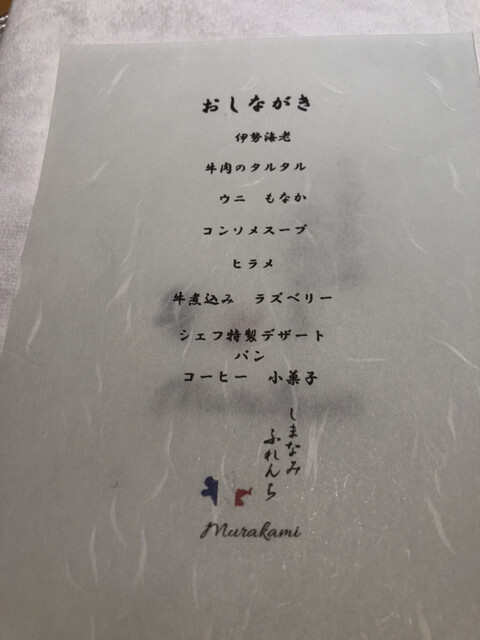 おしながき
伊勢海老
牛肉のタルタル
ウニ　もなか
コンソメスープ
ヒラメ
牛煮込み　ラズベリー
シェフ特製デザート
パン
コーヒー　小菓子
しまなみ
ふれんち
Murakami